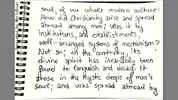 soul, of our whole modern culture:
How did Christianity arise and spread
abroad among men? Was it by
institutions, and establishments,
well-arranged systems of mechanism?
Not so; on the contrary, its
divine spirit has invariably been
found to languish and decay. It
arose in the mystic deeps of man's
soul; and was spread abroad by